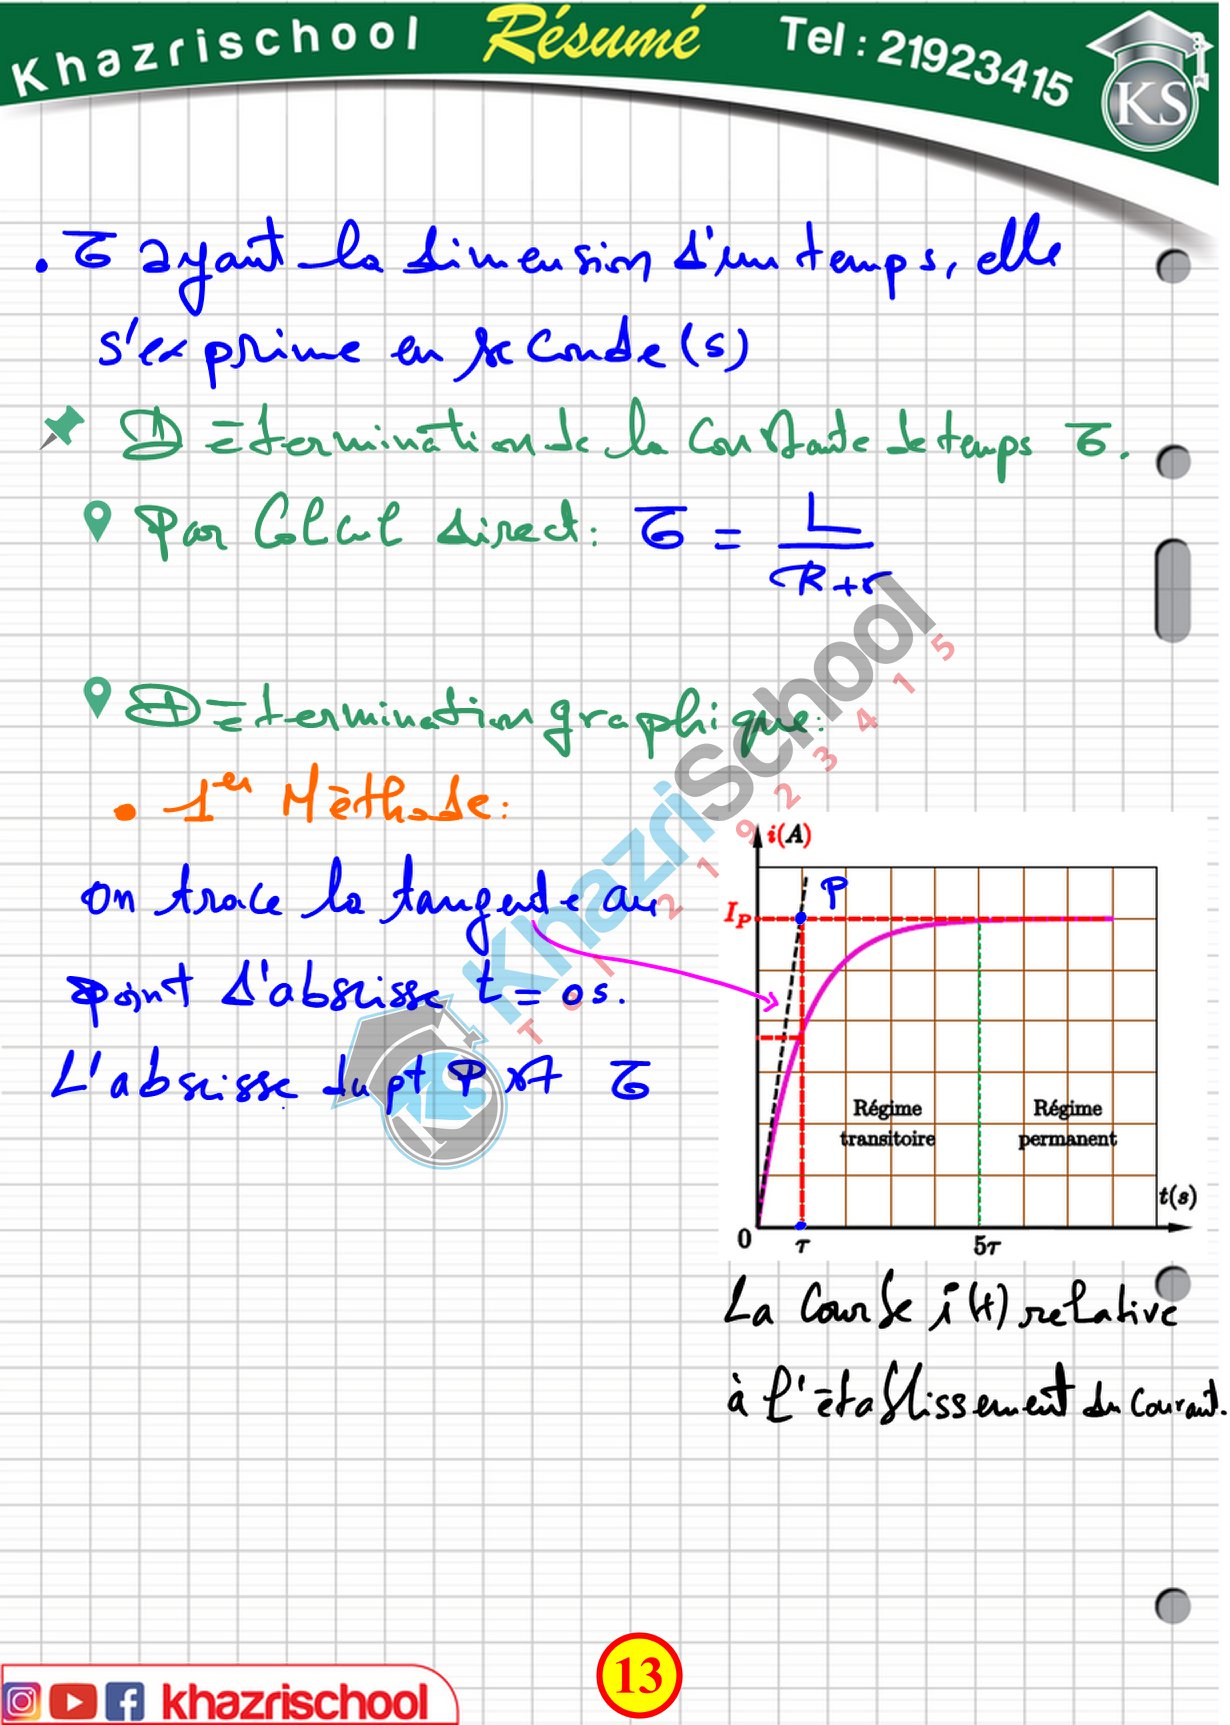 Khazrischool Résumé Tel : 21923415
KS
. τ ayant la dimension d'un temps, elle
s'exprime en seconde (s)
Détermination de la constante de temps τ.
Par calcul direct : τ = L / (R+r)
Détermination graphique :
• 1er Méthode :
on trace la tangente au
point d'abscisse t = 0s.
L'abscisse du pt P est τ
i(A)
P
I_P
Régime transitoire
Régime permanent
t(s)
0 τ 5τ
La courbe i(t) relative
à l'établissement du courant.
KhazriSchool
Tel: 21923415
KS
13
khazrischool